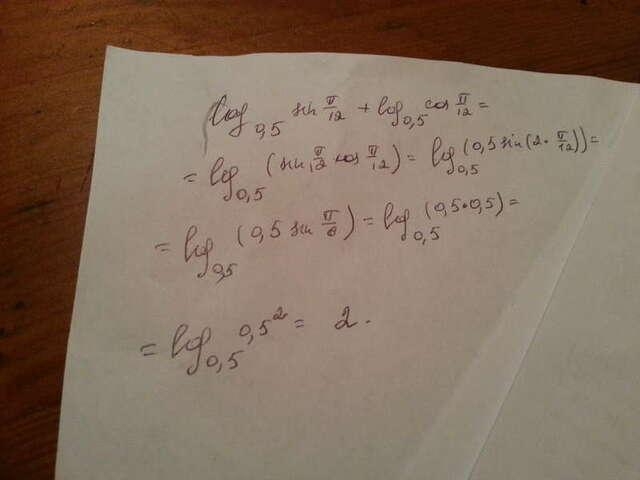 log₀,₅ sin π/12 + log₀,₅ cos π/12 =
= log₀,₅ (sin π/12 cos π/12) = log₀,₅ (0,5 sin(2·π/12)) =
= log₀,₅ (0,5 sin π/6) = log₀,₅ (0,5·0,5) =
= log₀,₅ 0,5² = 2.